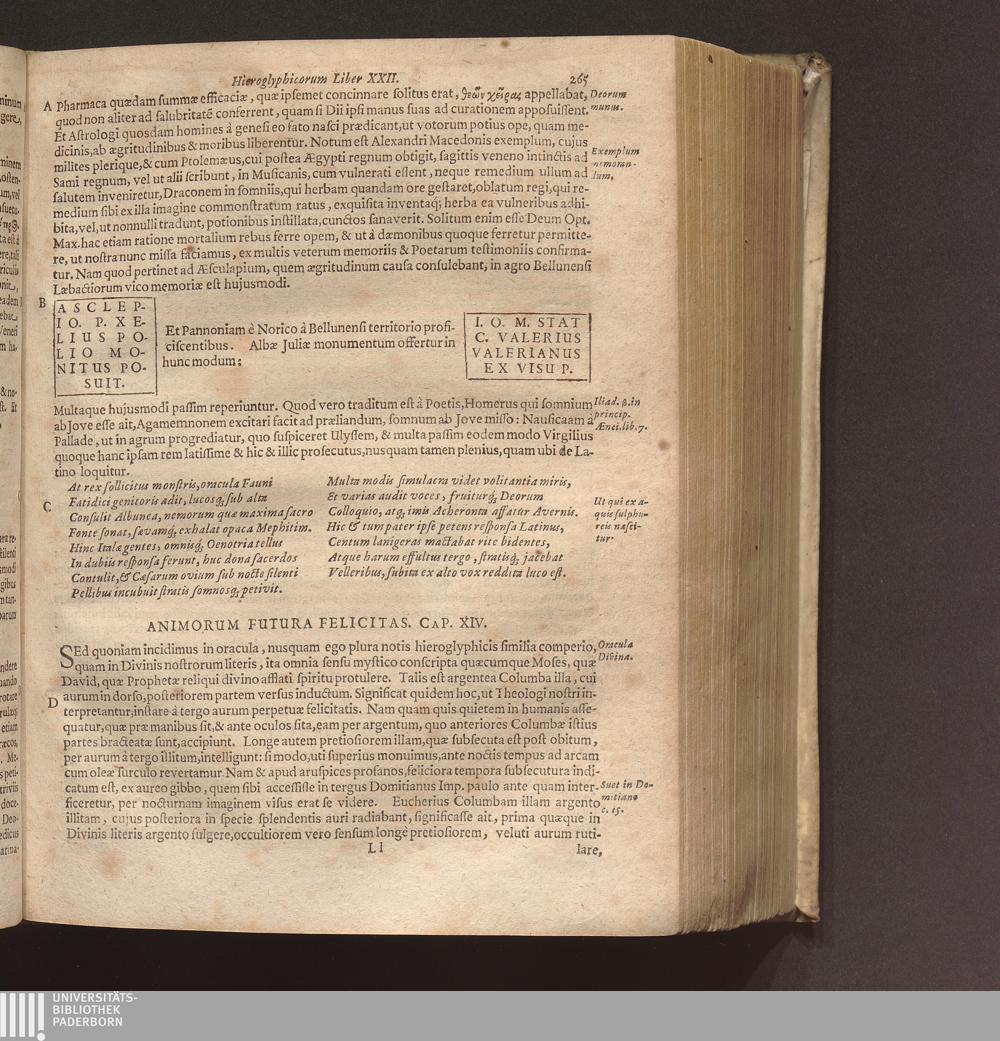 Hieroglyphicorum Liber XXII. 265
A Pharmaca quædam summæ efficaciæ, quæ ipsemet concinnare solitus erat, θεῶν χεῖρας appellabat,
quod non aliter ad salubritatē conferrent, quam si Dii ipsi manus suas ad curationem apposuissent.
Deorum
munus.
Et Astrologi quosdam homines à genesi eo fato nasci prædicant, ut votorum potius ope, quam me-
dicinis, ab ægritudinibus & moribus liberentur. Notum est Alexandri Macedonis exemplum, cujus
milites plerique, & cum Ptolemæus, cui postea Ægypti regnum obtigit, sagittis veneno intinctis ad
Sami regnum, vel ut alii scribunt, in Musicanis, cum vulnerati essent, neque remedium ullum ad
salutem inveniretur, Draconem in somniis, qui herbam quandam ore gestaret, oblatum regi, qui re-
medium sibi ex illa imagine commonstratum ratus, exquisita inventaq; herba ea vulneribus adhi-
bita, vel, ut nonnulli tradunt, potionibus instillata, cunctos sanaverit. Solitum enim esse Deum Opt.
Max. hac etiam ratione mortalium rebus ferre opem, & ut à dæmonibus quoque ferretur permitte-
re, ut nostra nunc missa faciamus, ex multis veterum memoriis & Poetarum testimoniis confirma-
tur. Nam quod pertinet ad Æsculapium, quem ægritudinum causa consulebant, in agro Bellunensi
Læbactiorum vico memoriæ est hujusmodi.
Exemplum
memoran-
dum.
B
ASCLEP-
IO. P. XE-
LIUS PO-
LIO MO-
NITUS PO-
SUIT.
Et Pannoniam è Norico à Bellunensi territorio profi-
ciscentibus. Albæ Juliæ monumentum offertur in
hunc modum:
I. O. M. STAT
C. VALERIUS
VALERIANUS
EX VISU P.
Multaque hujusmodi passim reperiuntur. Quod vero traditum est à Poetis, Homerus qui somnium
ab Jove esse ait, Agamemnonem excitari facit ad præliandum, somnum ab Jove misso: Nausicaam à
Pallade, ut in agrum progrediatur, quo suspiceret Ulyssem, & multa passim eodem modo Virgilius
quoque hanc ipsam rem latissime & hic & illic prosecutus, nusquam tamen plenius, quam ubi de La-
tino loquitur.
Iliad. β. in
princip.
Ænei. lib. 7.
At rex sollicitus monstris, oracula Fauni
C Fatidici genitoris adit, lucosq; sub alta
Consulit Albunea, nemorum quæ maxima sacro
Fonte sonat, sævamq; exhalat opaca Mephitim.
Hinc Italæ gentes, omnisq; Oenotria tellus
In dubiis responsa ferunt, huc dona sacerdos
Contulit, & Cæsarum ovium sub nocte silenti
Pellibus incubuit stratis somnosq; petivit.
Multa modis simulacra videt volitantia miris,
Et varias audit voces, fruiturq; Deorum
Colloquio, atq; imis Acheronta affatur Avernis.
Hic & tum pater ipse petens responsa Latinus,
Centum lanigeras mactabat rite bidentes,
Atque harum effultus tergo, stratisq; jacebat
Velleribus, subita ex alto vox reddita luco est.
Ut qui ex a-
quis sulphu-
reis nasci-
tur.
ANIMORUM FUTURA FELICITAS. CAP. XIV.
SEd quoniam incidimus in oracula, nusquam ego plura notis hieroglyphicis similia comperio,
quam in Divinis nostrorum literis, ita omnia sensu mystico conscripta quæcumque Moses, quæ
David, quæ Prophetæ reliqui divino afflati spiritu protulere. Talis est argentea Columba illa, cui
aurum in dorso, posteriorem partem versus inductum. Significat quidem hoc, ut Theologi nostri in-
D terpretantur, instare à tergo aurum perpetuæ felicitatis. Nam quam quis quietem in humanis asse-
quatur, quæ præ manibus sit, & ante oculos sita, eam per argentum, quo anteriores Columbæ istius
partes bracteatæ sunt, accipiunt. Longe autem pretiosiorem illam, quæ subsecuta est post obitum,
per aurum à tergo illitum, intelligunt: si modo, uti superius monuimus, ante noctis tempus ad arcam
cum oleæ surculo revertamur. Nam & apud aruspices profanos, feliciora tempora subsecutura indi-
catum est, ex aureo gibbo, quem sibi accessisse in tergus Domitianus Imp. paulo ante quam inter-
ficeretur, per nocturnam imaginem visus erat se videre. Eucherius Columbam illam argento
illitam, cujus posteriora in specie splendentis auri radiabant, significasse ait, prima quæque in
Divinis literis argento fulgere, occultiorem vero sensum longe pretiosiorem, veluti aurum ruti-
Oracula
Divina.
Suet in Do-
mitiano
c. 15.
Ll lare,
UNIVERSITÄTS-
BIBLIOTHEK
PADERBORN